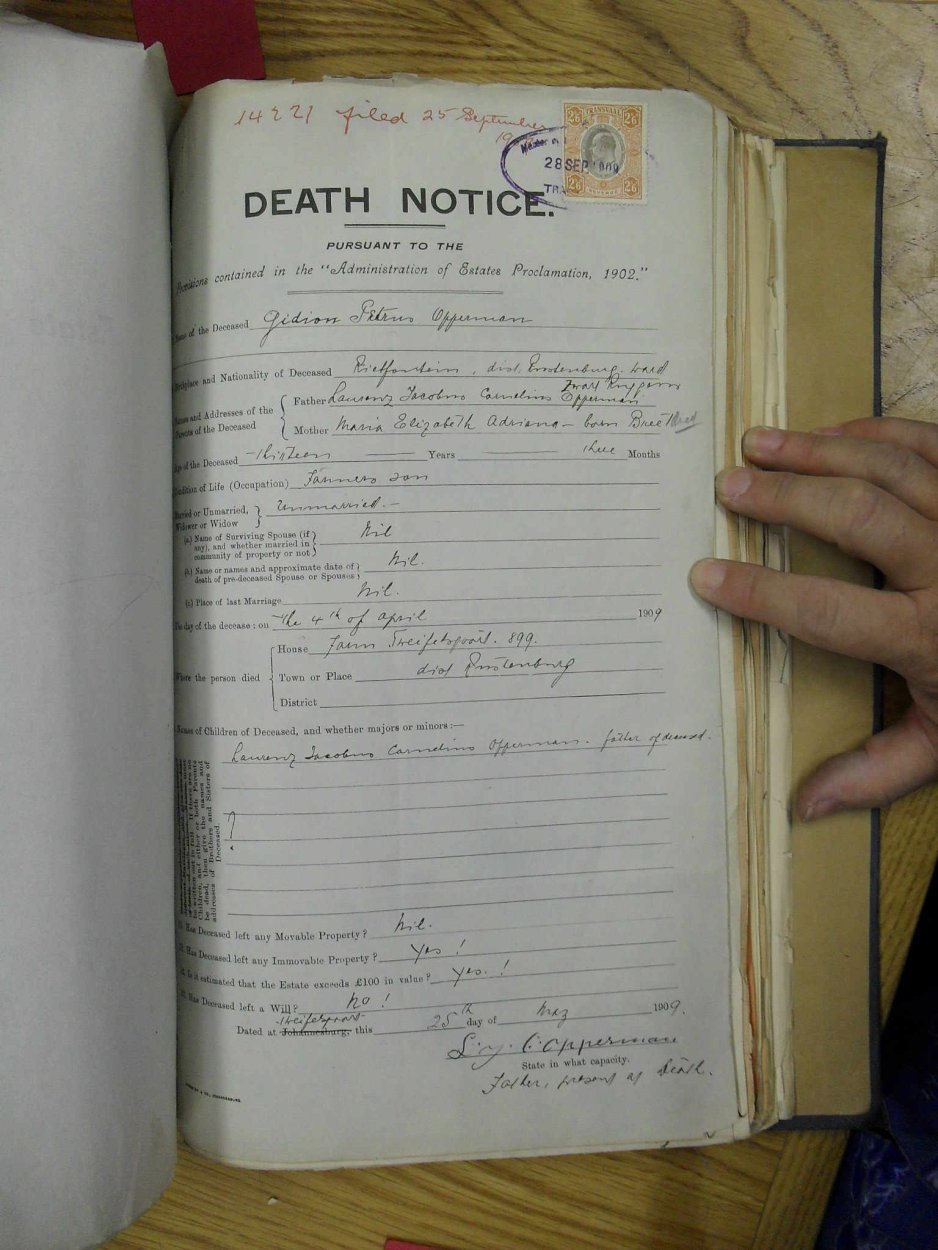 14221 filed 25 September
19
TRANSVAAL
2/6 2/6
28 SEP 1909
2/6 REVENUE 2/6
DEATH NOTICE.
PURSUANT TO THE
Provisions contained in the "Administration of Estates Proclamation, 1902."
Name of the Deceased Gidion Petrus Opperman
Birthplace and Nationality of Deceased Rietfontein, dist. Rustenburg. ward
Zwart Ruggens
Names and Addresses of the Parents of the Deceased
Father Laurenz Jacobus Cornelius Opperman
Mother Maria Elizabeth Adriana - born
Age of the Deceased Thirteen Years three Months
Condition of Life (Occupation) Farmers son
Married or Unmarried, Widower or Widow } Unmarried. -
(a.) Name of Surviving Spouse (if any), and whether married in community of property or not } Nil
(b.) Name or names and approximate date of death of pre-deceased Spouse or Spouses } Nil.
(c) Place of last Marriage Nil.
The day of the decease: on the 4th of April 1909
Where the person died
House Farm 899.
Town or Place dist Rustenburg
District
Names of Children of Deceased, and whether majors or minors:—
Laurenz Jacobus Cornelius Opperman. father of deceased.
Children, and either or both Parents
be dead, then give the names and
addresses of Brothers and Sisters of
Deceased.
Has Deceased left any Movable Property? Nil.
Has Deceased left any Immovable Property? Yes!
Is it estimated that the Estate exceeds £100 in value? Yes.!
Has Deceased left a Will? No!
Dated at Johannesburg, this 25th day of 1909.
L. J. C. Opperman
State in what capacity.
Father, present at death.